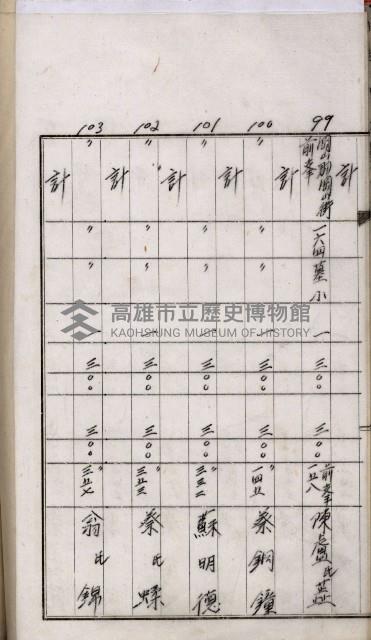 99
岡山郡岡山街
前峯
一六四
墓
小
一
三〇〇
三〇〇
前峯
一五八
陳氏
計
100
〃
〃
〃
一
三〇〇
三〇〇
〃
一四五
蔡鋼鐘
計
101
〃
〃
〃
一
三〇〇
三〇〇
〃
三三二
蘇明德
計
102
〃
〃
〃
一
三〇〇
三〇〇
〃
三五三
蔡氏
計
103
〃
〃
〃
三〇〇
三〇〇
〃
三五七
翁氏錦
計
高雄市立歷史博物館
KAOHSIUNG MUSEUM OF HISTORY